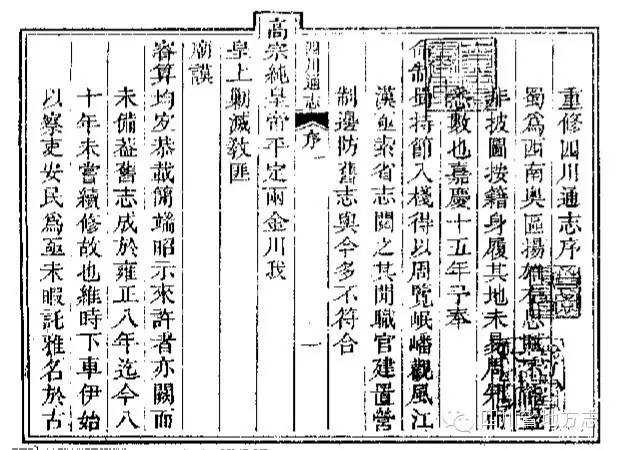 重修四川通志序
蜀爲西南奧區揚雄左思賦
非披圖按籍身履其地未易周知而
悉數也嘉慶十五年予奉
命制蜀持節入棧得以周覽岷嶓觀風江
漢亟索省志閱之其間職官建置營
制邊防舊志與今多不符合
四川通志 序 一
高宗純皇帝平定兩金川我
皇上勦滅敎匪
廟謨
睿算均宜恭載簡端昭示來許者亦闕而
未備蓋舊志成於雍正八年迄今八
十年未嘗續修故也維時下車伊始
以察吏安民爲亟未暇託雅名於古
方志